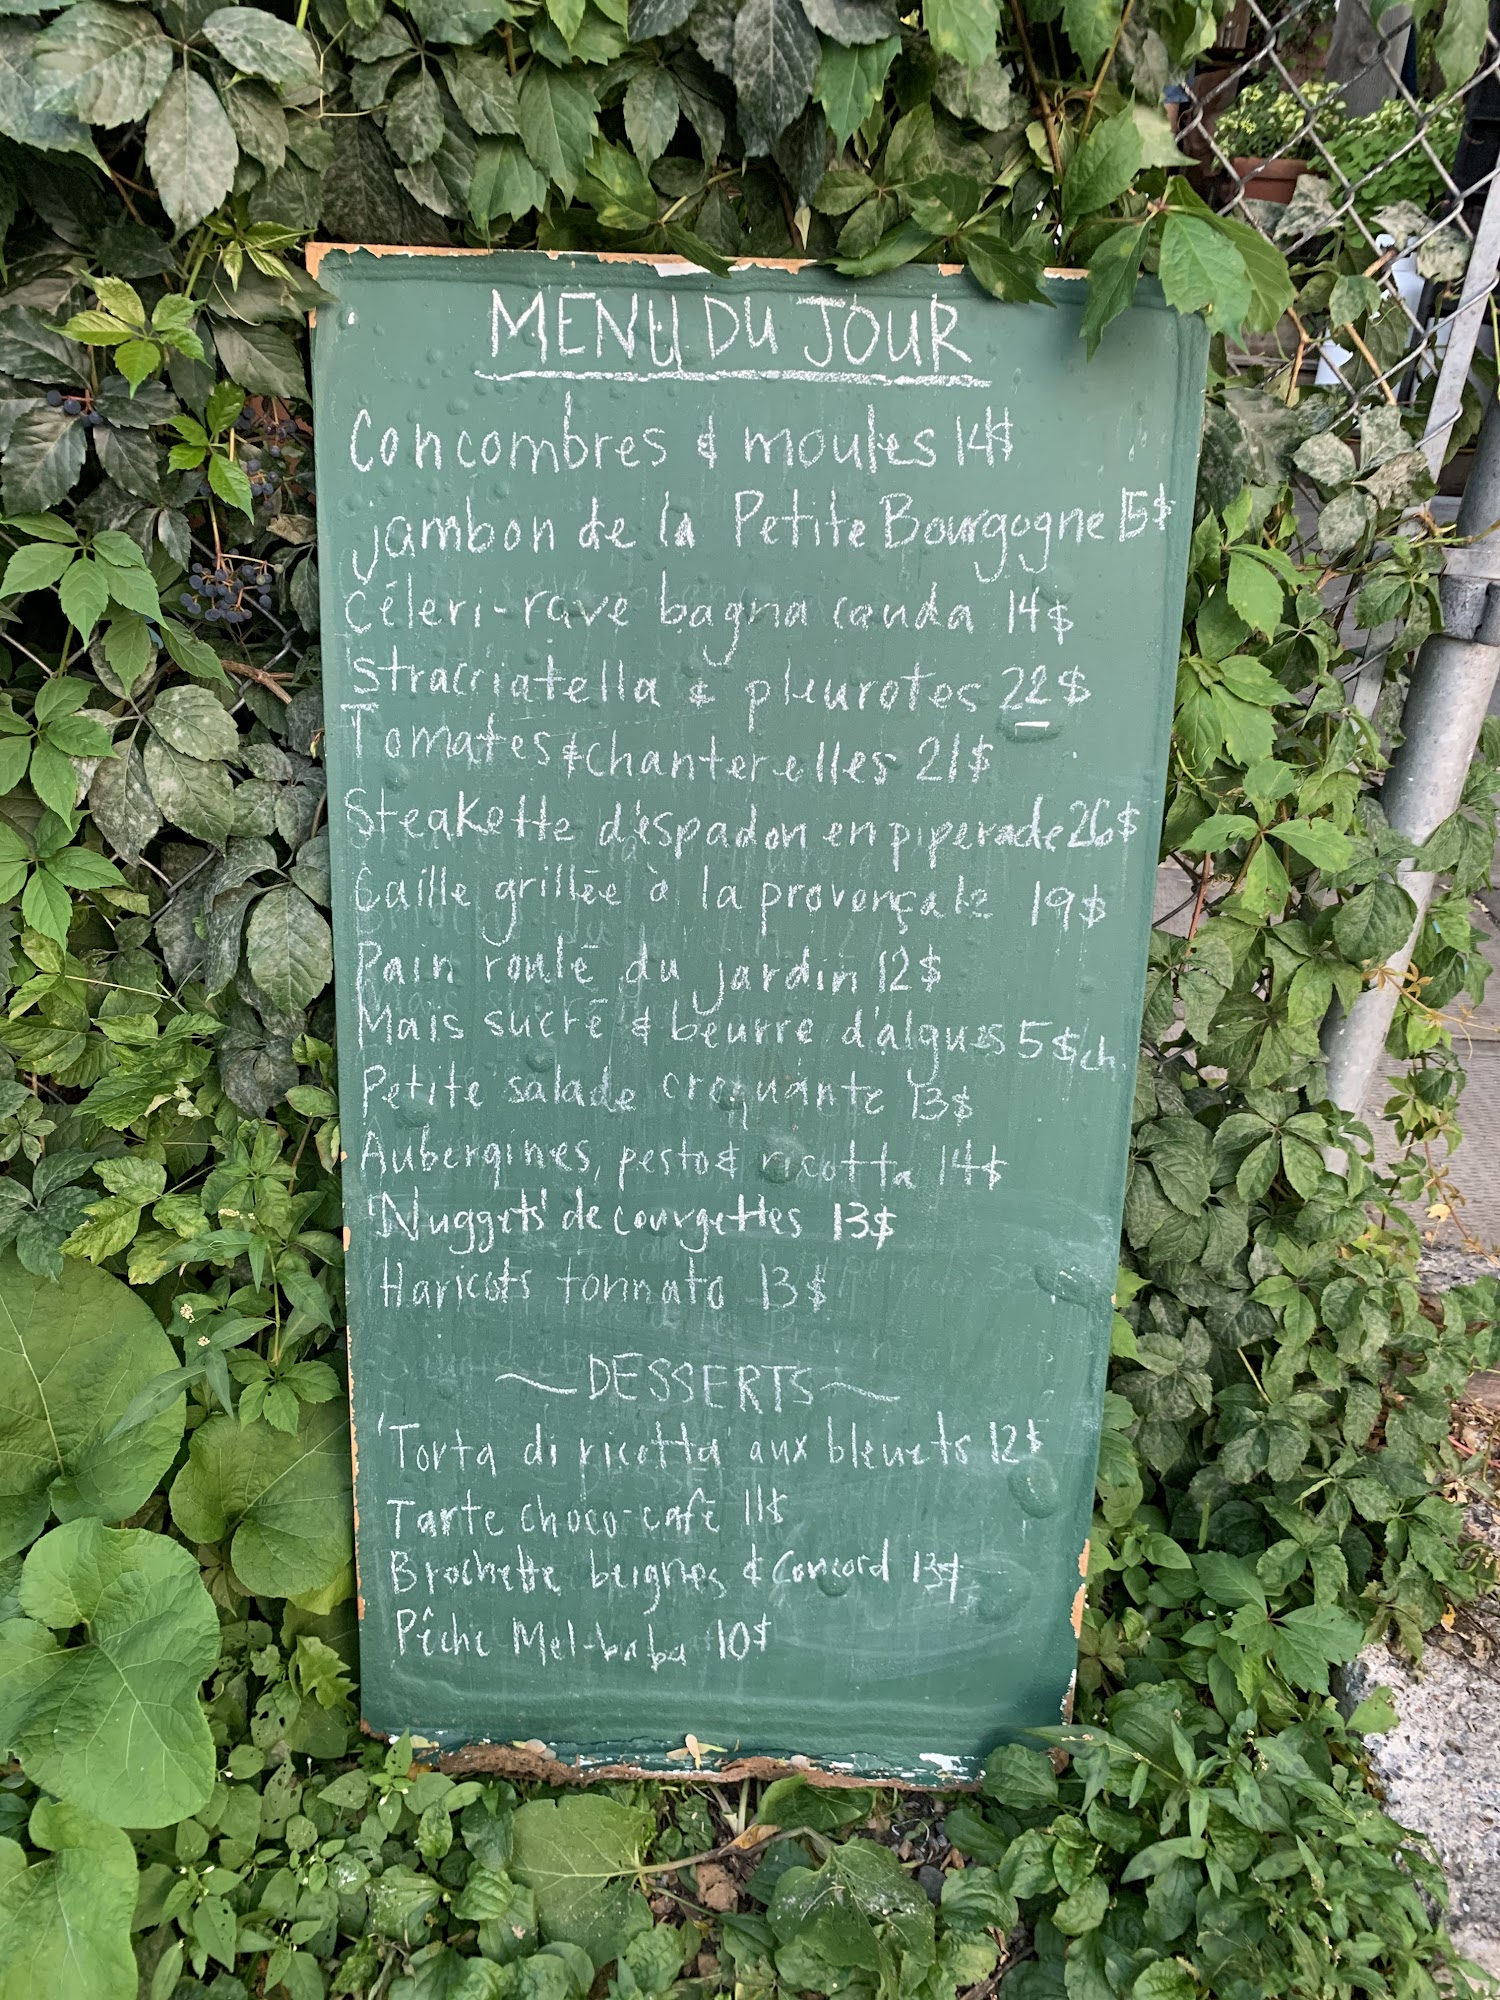 MENU DU JOUR
Concombres & moules 14$
jambon de la Petite Bourgogne 15$
Céleri-rave bagna cauda 14$
Stracciatella & pleurotes 22$
Tomates & chanterelles 21$
Steakette d'espadon en piperade 26$
Caille grillée à la provençale 19$
Pain roulé du jardin 12$
Mais sucré & beurre d'algues 5$ch.
Petite salade croquante 13$
Aubergines, pesto & ricotta 14$
'Nuggets' de courgettes 13$
Haricots tonnato 13$
~DESSERTS~
'Torta di ricotta' aux bleuets 12$
Tarte choco-café 11$
Brochette beignes & Concord 13$
Pêche Mel-baba 10$